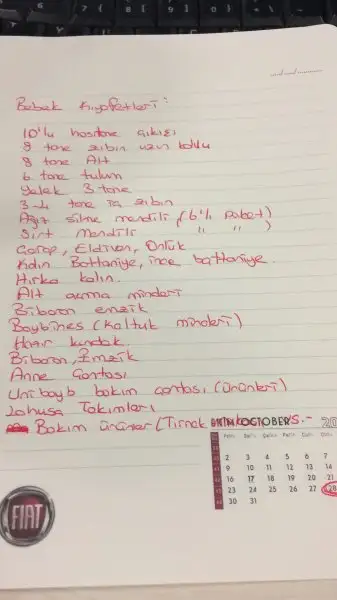 Bebek Kıyafetleri:
10'lu hastane çıkışı
8 tane zıbın uzun kollu
8 tane Alt
6 tane tulum
Yelek 3 tane
3-4 tane iç zıbın
Ağız silme mendili (6'lı Paket)
Sırt Mendili ( " " )
Çorap, Eldiven, Önlük
Kalın Battaniye, ince battaniye.
Hırka kalın.
Alt açma minderi
Biberon emzik
Baybines (Koltuk minderi)
Hazır kundak.
Biberon, Emzik
Anne Çantası
Unibayb bakım çantası (ürünleri)
Lohusa Takımları
Bakım ürünler (Tırnak
EKİM OCTOBER 20
2 3 4 5 6 7
9 10 11 12 13 14
16 17 18 19 20 21
23 24 25 26 27 28
30 31
FIAT